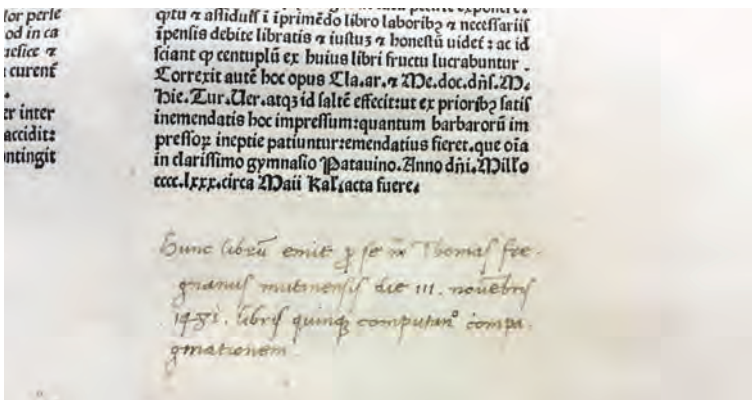 lor perle
od in ca
nefice ⁊
curenť
er inter
accidit:
ontingit
q̃tu ⁊ assiduss ī īprimēdo libro laboribꝫ ⁊ necessariis
īpensis debite libratis ⁊ iustuꝫ ⁊ honestū uideť: ac id
sciant ꝙ centuplū ex huius libri fructu lucrabuntur.
Correxit autē hoc opus Cla.ar.⁊ Me.doc.dñs.M.
Hie.Tur.Uer.atqꝫ id saltē effecit:ut ex prioribꝫ satis
inemendatis hoc impressum:quantum barbarorū im
pressoꝝ ineptie patiuntur:emendatius fieret.que oīa
in clarissimo gymnasio Patauino.Anno dñi.Millo
cccc.lxxx.circa Maii Kal.acta fuere.
Hunc librū emit ꝓ se m̄ Thomas fre-
gnanus mutinensis die III. novēbris
1481. libris quinqꝫ computanº compa-
gmationem